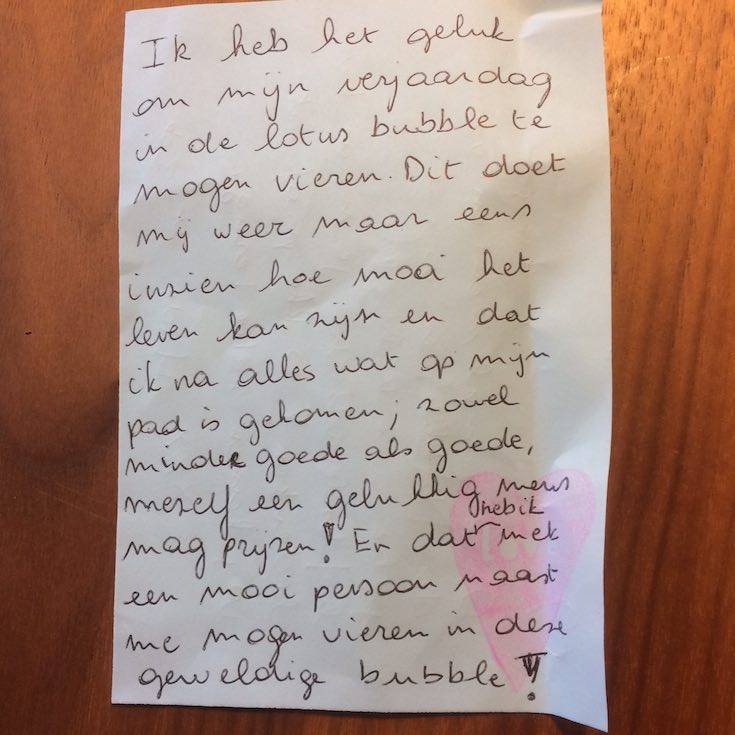 Ik heb het geluk
om mijn verjaardag
in de lotus bubble te
mogen vieren. Dit doet
mij weer maar eens
inzien hoe mooi het
leven kan zijn en dat
ik na alles wat op mijn
pad is gekomen; zowel
minder goede als goede,
mezelf een gelukkig mens
hebik
mag prijzen! En dat met
een mooi persoon naast
me mogen vieren in deze
geweldige bubble!